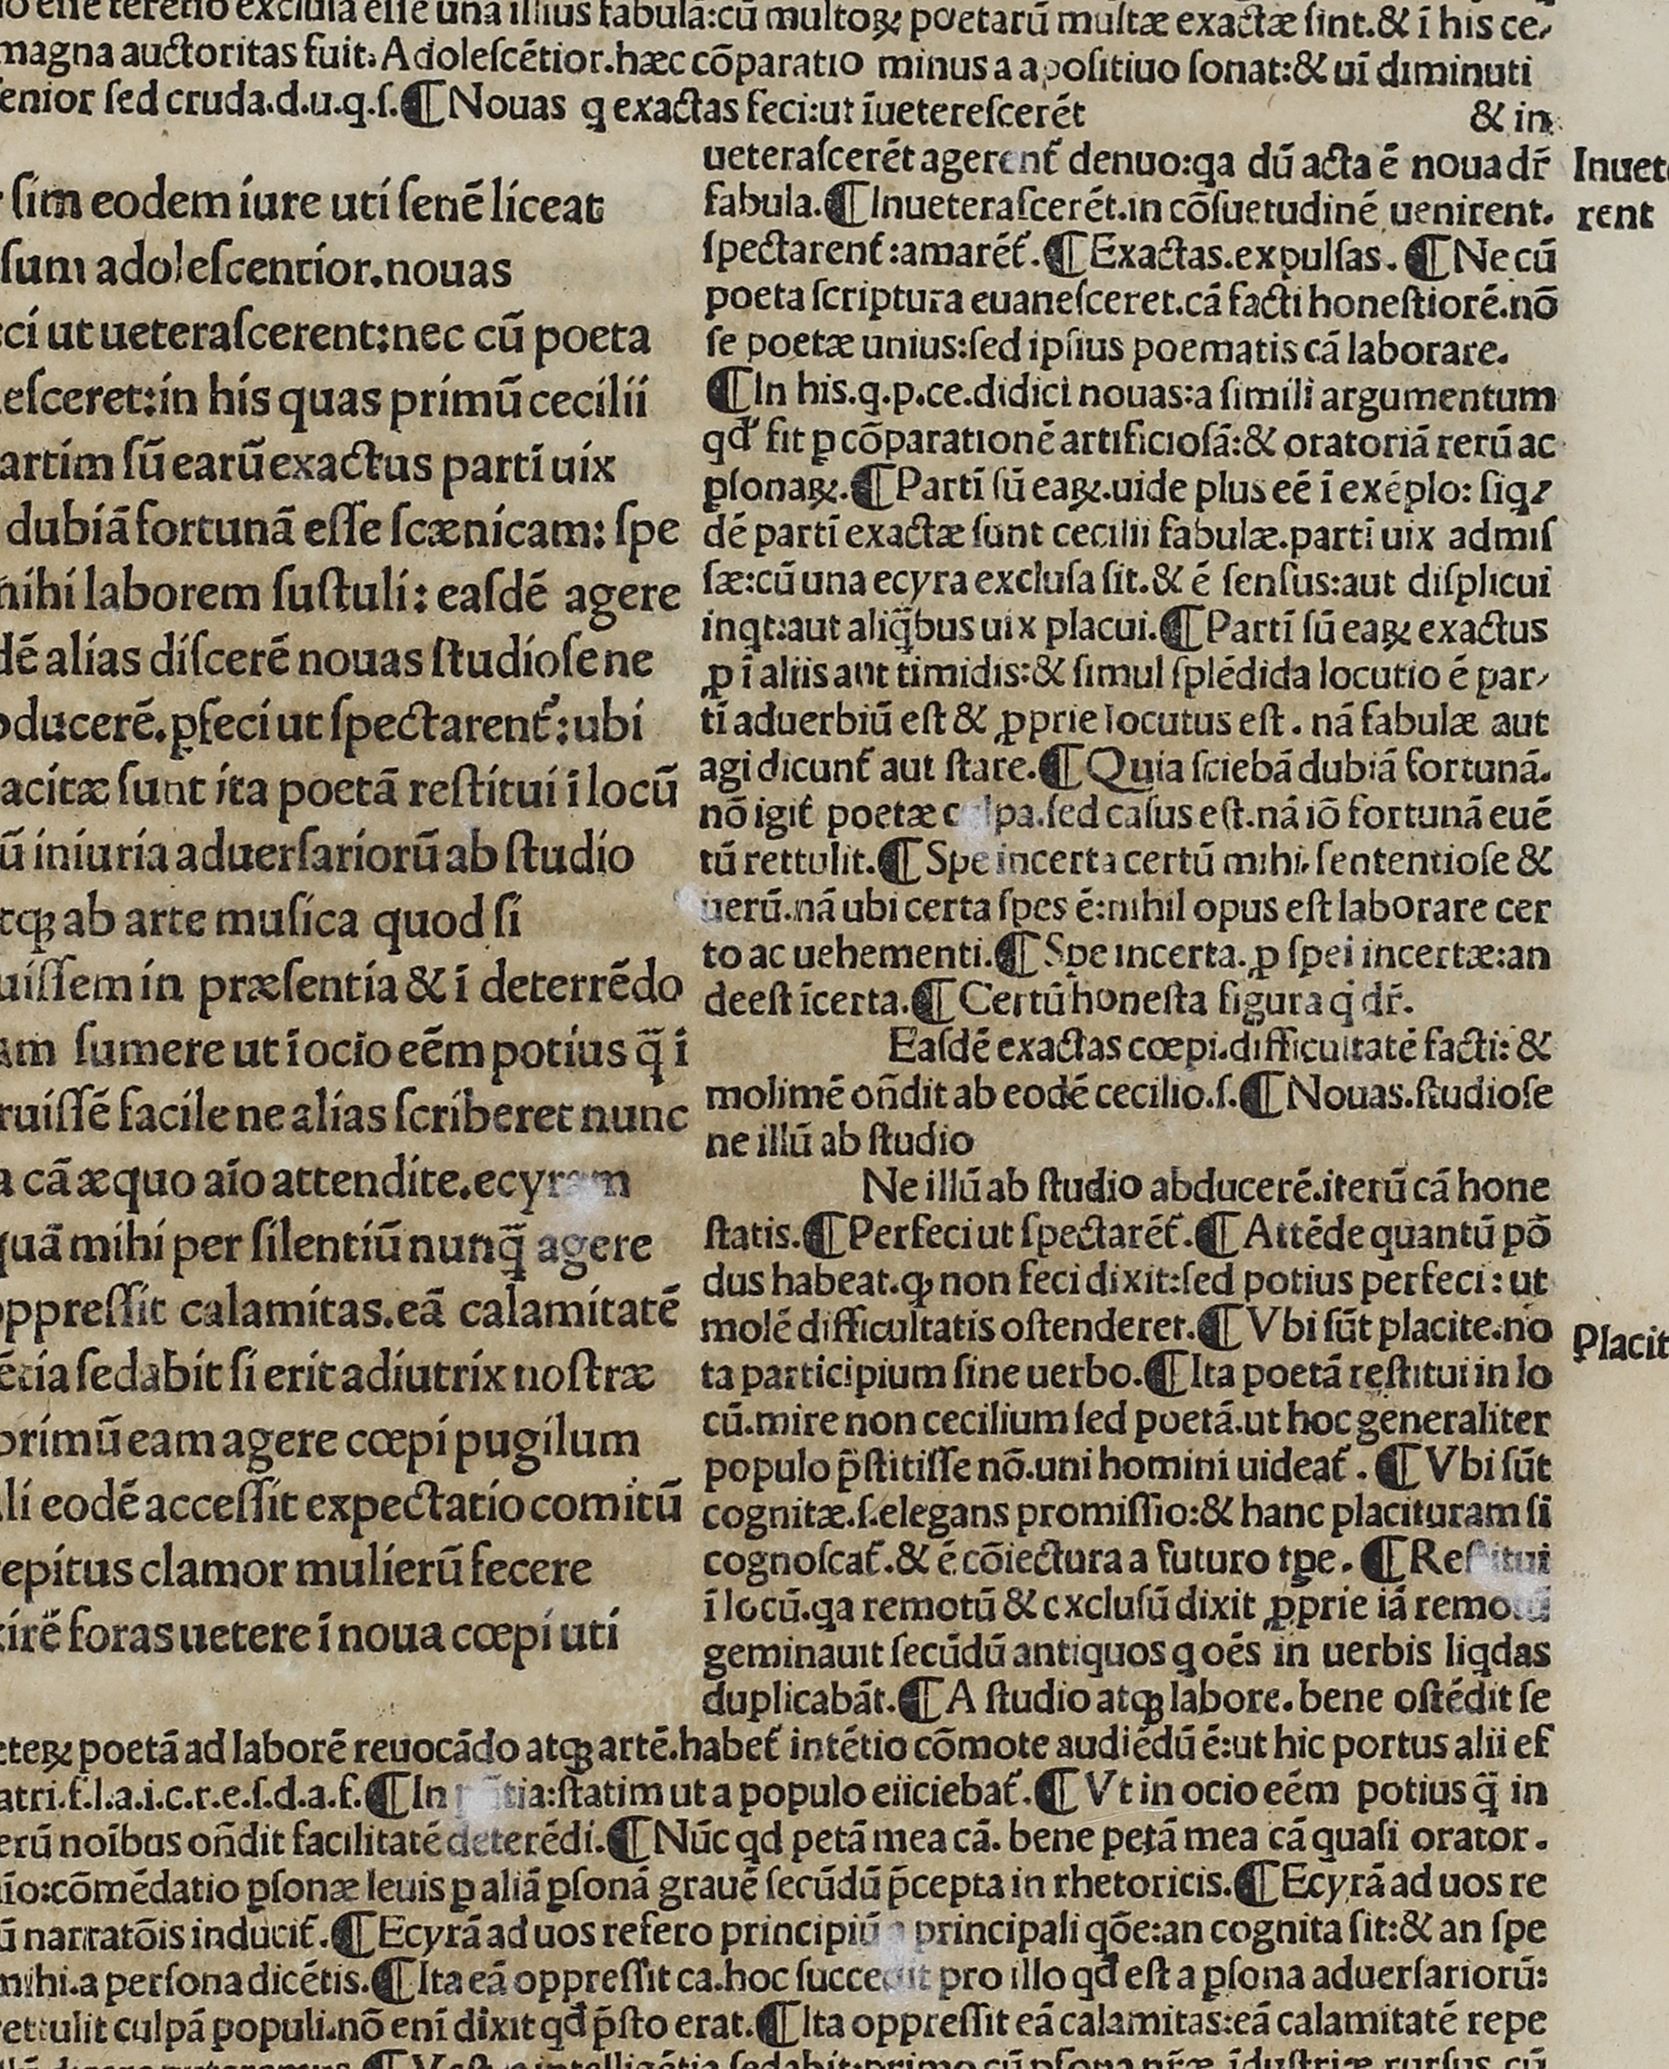 eſſe terētio excluſa eſſe una illius fabulā:cū multoꝝ poetarū multæ exactæ ſint.& ī his ce,
magna auctoritas fuit:Adoleſcētior.hæc cōparatio minus a apoſitiuo ſonat:& uī diminuti
enior ſed cruda.d.u.q.ſ.¶Nouas q exactas feci:ut īuetereſcerēt & in
ſim eodem iure uti ſenē liceat
ſum adoleſcentior.nouas
ci ut ueteraſcerent:nec cū poeta
eſceret:in his quas primū cecilii
artim ſū earū exactus partī uix
dubiā fortunā eſſe ſcænicam: ſpe
mihi laborem ſuſtuli: eaſdē agere
dē alias diſcerē nouas ſtudioſe ne
oducerē.ꝑfeci ut ſpectarent᷑:ubi
acitæ ſunt ita poetā reſtitui ī locū
ū iniuria aduerſariorū ab ſtudio
tqꝫ ab arte muſica quod ſi
uiſſem in præſentia & ī deterrēdo
am ſumere ut ī ocio eēm potius q̄ ī
ruiſſē facile ne alias ſcriberet nunc
a cā æquo aīo attendite.ecyram
quā mihi per ſilentiū nunq̄ agere
oppreſſit calamitas.eā calamitatē
ētia ſedabit ſi erit adiutrix noſtræ
primū eam agere cœpi pugilum
li eodē acceſſit expectatio comitū
repitus clamor mulierū fecere
xirē foras uetere ī noua cœpi uti
ueteraſcerēt agerent᷑ denuo:qa dū acta ē noua dr̄
fabula.¶Inueteraſcerēt.in cōſuetudinē uenirent.
ſpectarent᷑:amarēt᷑.¶Exactas.expulſas.¶Ne cū
poeta ſcriptura euaneſceret.cā facti honeſtiorē.nō
ſe poetæ unius:ſed ipſius poematis cā laborare.
¶In his.q.p.ce.didici nouas:a ſimili argumentum
qđ fit ꝑ cōparationē artificioſā:& oratoriā rerū ac
ꝑſonaꝝ.¶Partī ſū eaꝝ.uide plus eē ī exēplo: ſiq,
dē partī exactæ ſunt cecilii fabulæ.partī uix admiſ
ſæ:cū una ecyra excluſa ſit.& ē ſenſus:aut diſplicui
inqt:aut aliq̄bus uix placui.¶Partī ſū eaꝝ exactus
ꝓ ī aliis aut timidis:& ſimul ſplēdida locutio ē par,
tī aduerbiū eſt & ꝓprie locutus eſt. nā fabulæ aut
agi dicunt᷑ aut ſtare.¶Quia ſciebā dubiā fortunā.
nō igit᷑ poetæ culpa.ſed caſus eſt.nā iō fortunā euē
tū rettulit.¶Spe incerta certū mihi.ſententioſe &
uerū.nā ubi certa ſpes ē:nihil opus eſt laborare cer
to ac uehementi.¶Spe incerta.ꝓ ſpei incertæ:an
deeſt īcerta.¶Certū honeſta figura q dr̄.
Eaſdē exactas cœpi.difficultatē facti: &
molimē oñdit ab eodē cecilio.ſ.¶Nouas.ſtudioſe
ne illū ab ſtudio
Ne illū ab ſtudio abducerē.iterū cā hone
ſtatis.¶Perfeci ut ſpectarēt᷑.¶Attēde quantū pō
dus habeat.ꝙ non feci dixit:ſed potius perfeci: ut
molē difficultatis oſtenderet.¶Vbi ſūt placite.no
ta participium ſine uerbo.¶Ita poetā reſtitui in lo
cū.mire non cecilium ſed poetā.ut hoc generaliter
populo p̄ſtitiſſe nō.uni homini uideat᷑.¶Vbi ſūt
cognitæ.ſ.elegans promiſſio:& hanc placituram ſi
cognoſcat᷑.& ē cōiectura a futuro tꝑe.¶Reſtitui
ī locū.qa remotū & excluſū dixit ꝓprie iā remotū
geminauit ſecūdū antiquos q oēs in uerbis liqdas
duplicabāt.¶A ſtudio atqꝫ labore.bene oſtēdit ſe
eteꝝ poetā ad laborē reuocādo atqꝫ artē.habet᷑ intētio cōmote audiēdū ē:ut hic portus alii ef
atri.f.l.a.i.c.r.e.ſ.d.a.f.¶In p̄ſētia:ſtatim ut a populo eiiciebat᷑.¶Vt in ocio eēm potius q̄ in
erū noībus oñdit facilitatē deterēdi.¶Nūc qd petā mea cā. bene petā mea cā quaſi orator.
īo:cōmēdatio ꝑſonæ leuis ꝑ aliā ꝑſonā grauē ſecūdū p̄cepta in rhetoricis.¶Ecyrā ad uos re
ū narratōis inducit᷑.¶Ecyrā ad uos refero principiū a principali qōe:an cognita ſit:& an ſpe
mihi.a perſona dicētis.¶Ita eā oppreſſit ca.hoc ſuccedit pro illo qđ eſt a ꝑſona aduerſariorū:
rettulit culpā populi.nō enī dixit qđ p̄ſto erat.¶Ita oppreſſit eā calamitas:eā calamitatē repe
intelligētia ſedabit:primo cū ꝑſona nr̄æ īduſtriæ rurſus cū
Inuet
rent
Placit